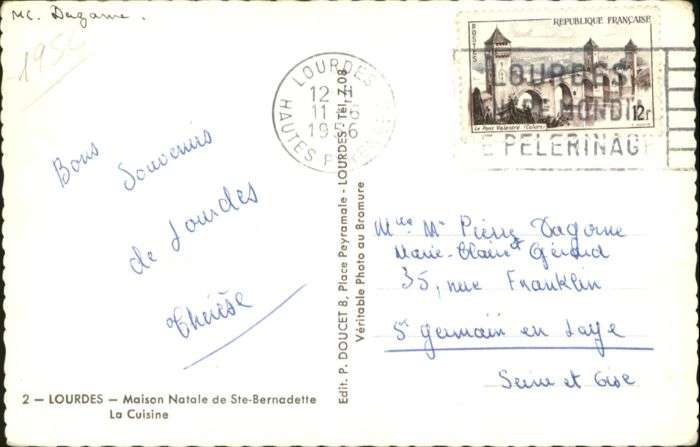 MC. Dagorne.
1956
Bons
Souvenirs
de Lourdes
Thérèse
2 — LOURDES — Maison Natale de Ste-Bernadette
La Cuisine
Edit. P. DOUCET 8, Place Peyramale - LOURDES - Tél. 7.08
Véritable Photo au Bromure
LOURDES
12 H
11
1956
HAUTES
REPUBLIQUE FRANÇAISE
POSTES
Le Pont Valentré (Cahors)
12F
LOURDES
MONDI
PELERINAG
Mlle Mr Pierre Dagorne
Marie-Claire et Gérard
35, rue Franklin
St Germain en Laye
Seine et Oise